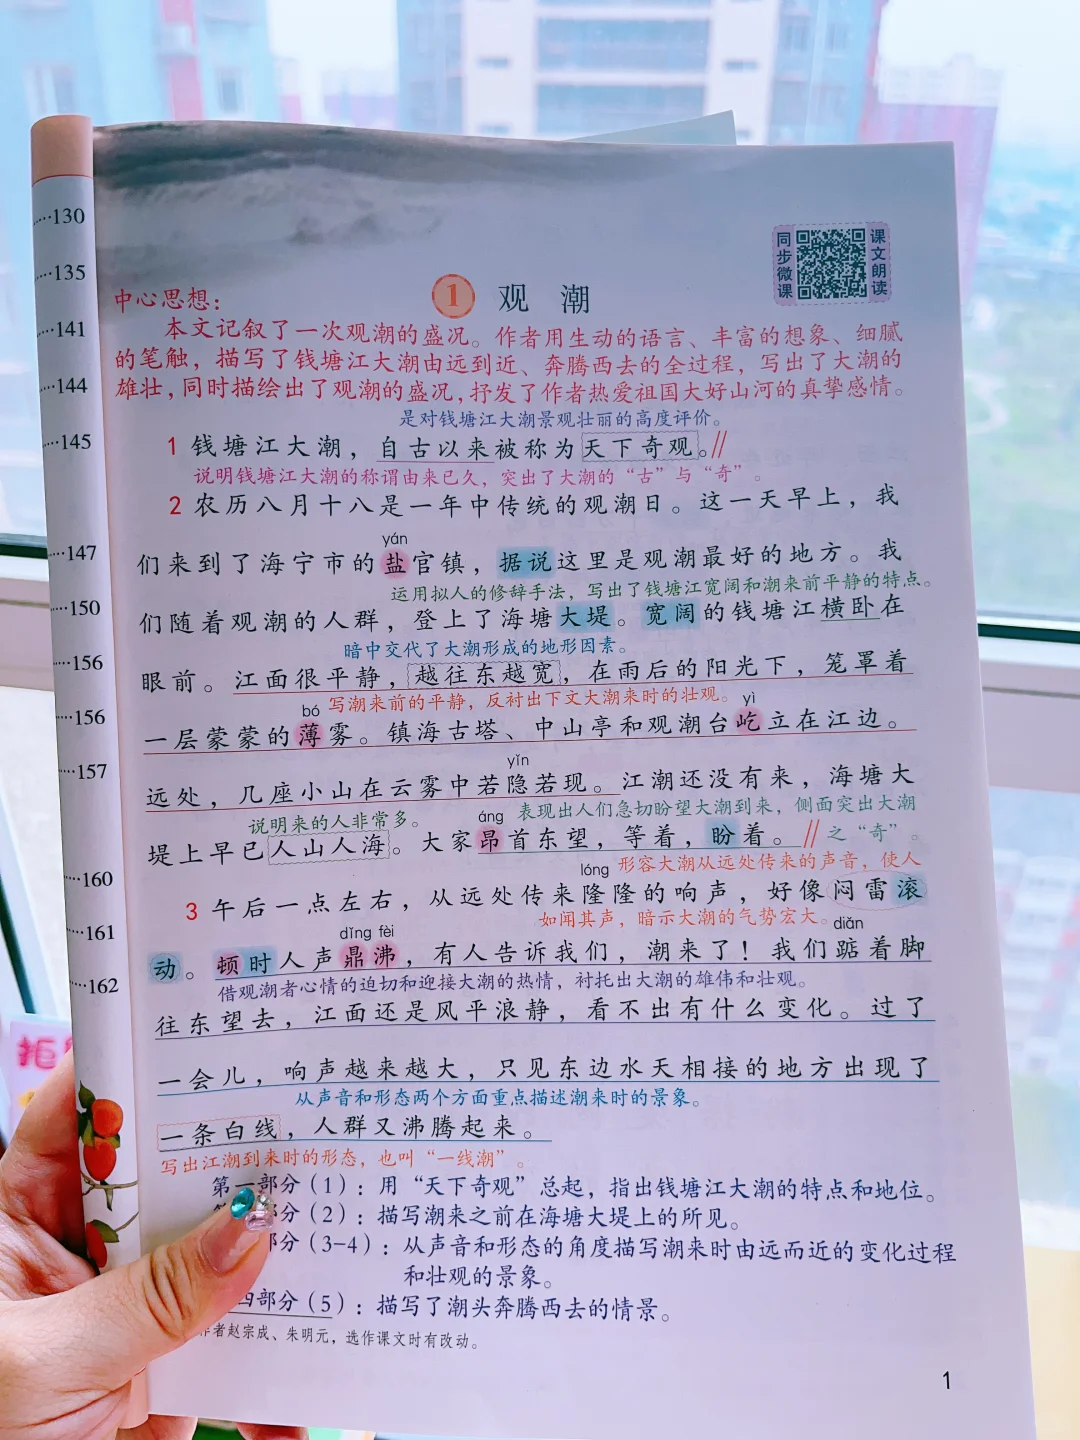 130
135
141
144
145
147
150
156
156
157
160
161
162
同步微课
课文朗读
1 观潮
中心思想：
本文记叙了一次观潮的盛况。作者用生动的语言、丰富的想象、细腻
的笔触，描写了钱塘江大潮由远到近、奔腾西去的全过程，写出了大潮的
雄壮，同时描绘出了观潮的盛况，抒发了作者热爱祖国大好山河的真挚感情。
是对钱塘江大潮景观壮丽的高度评价。
1 钱塘江大潮，自古以来被称为天下奇观。//
说明钱塘江大潮的称谓由来已久，突出了大潮的“古”与“奇”。
2 农历八月十八是一年中传统的观潮日。这一天早上，我
yán
们来到了海宁市的盐官镇，据说这里是观潮最好的地方。我
运用拟人的修辞手法，写出了钱塘江宽阔和潮来前平静的特点。
们随着观潮的人群，登上了海塘大堤。宽阔的钱塘江横卧在
暗中交代了大潮形成的地形因素。
眼前。江面很平静，越往东越宽，在雨后的阳光下，笼罩着
bó 写潮来前的平静，反衬出下文大潮来时的壮观。 yì
一层蒙蒙的薄雾。镇海古塔、中山亭和观潮台屹立在江边。
yǐn
远处，几座小山在云雾中若隐若现。江潮还没有来，海塘大
说明来的人非常多。 áng 表现出人们急切盼望大潮到来，侧面突出大潮
堤上早已人山人海。大家昂首东望，等着，盼着。// 之“奇”。
lóng 形容大潮从远处传来的声音，使人
3 午后一点左右，从远处传来隆隆的响声，好像闷雷滚
如闻其声，暗示大潮的气势宏大。
dǐng fèi diǎn
动。顿时人声鼎沸，有人告诉我们，潮来了！我们踮着脚
借观潮者心情的迫切和迎接大潮的热情，衬托出大潮的雄伟和壮观。
往东望去，江面还是风平浪静，看不出有什么变化。过了
一会儿，响声越来越大，只见东边水天相接的地方出现了
从声音和形态两个方面重点描述潮来时的景象。
一条白线，人群又沸腾起来。
写出江潮到来时的形态，也叫“一线潮”。
第一部分（1）：用“天下奇观”总起，指出钱塘江大潮的特点和地位。
部分（2）：描写潮来之前在海塘大堤上的所见。
部分（3-4）：从声音和形态的角度描写潮来时由远而近的变化过程
和壮观的景象。
四部分（5）：描写了潮头奔腾西去的情景。
作者赵宗成、朱明元，选作课文时有改动。
1